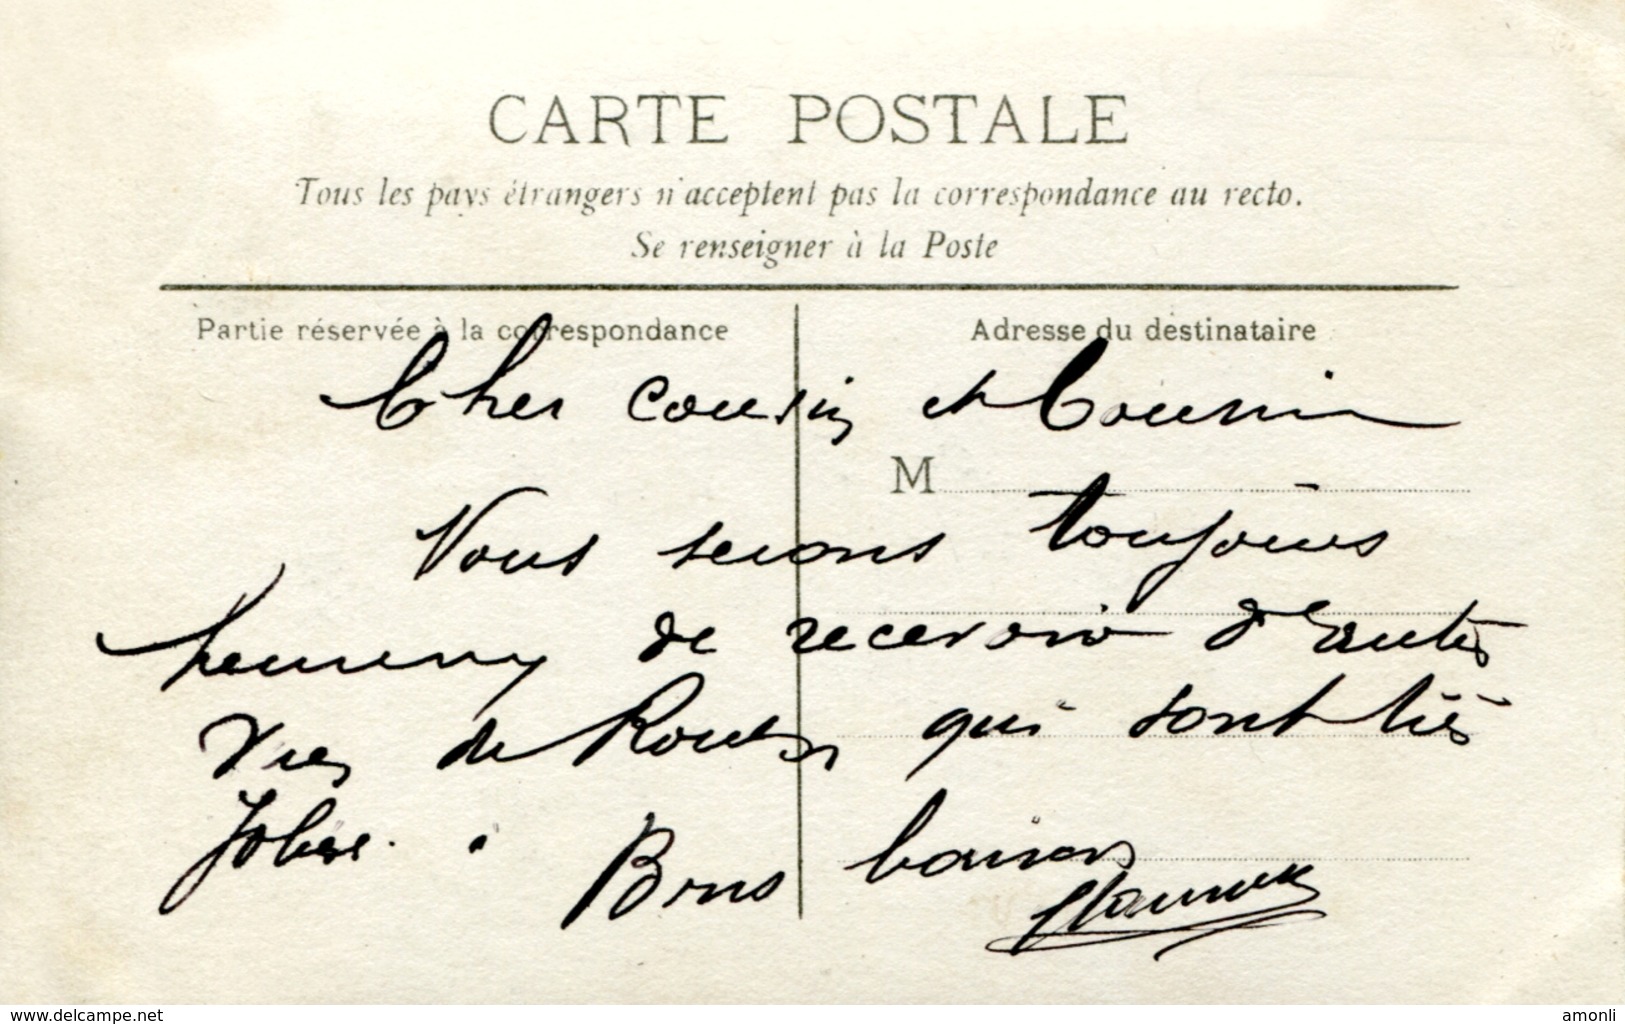 CARTE POSTALE
Tous les pays étrangers n'acceptent pas la correspondance au recto.
Se renseigner à la Poste
Partie réservée à la correspondance
Adresse du destinataire
Cher cousin et Cousine
M
Nous serons toujours
heureux de recevoir d'autres
vues de qui sont très
Jolies.
Bons baisers
www.delcampe.net
amonli